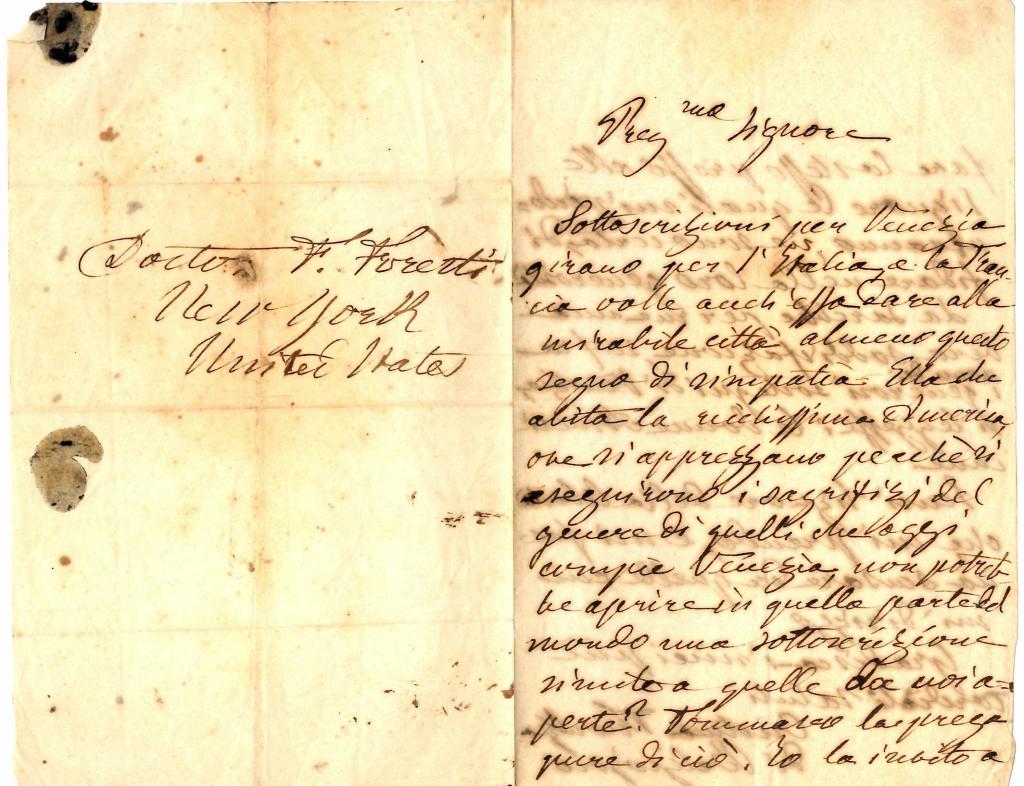 Doctor F. Foresti
New York
United States
Preg.mo Signore
Sottoscrizioni per Venezia
girano per l'Italia, e la Fran-
cia volle anch'essa dare alla
mirabile città almeno questo
segno di simpatia. Ella che
abita la ricchissima America,
ove si apprezzano perchè si
eseguirono i sagrifizj del
genere di quelli che oggi
compie Venezia, non potreb-
be aprire in quella parte del
mondo una sottoscrizione
simile a quelle da noi a-
perte? Tommaseo la prega
pure di ciò. Io la invito a